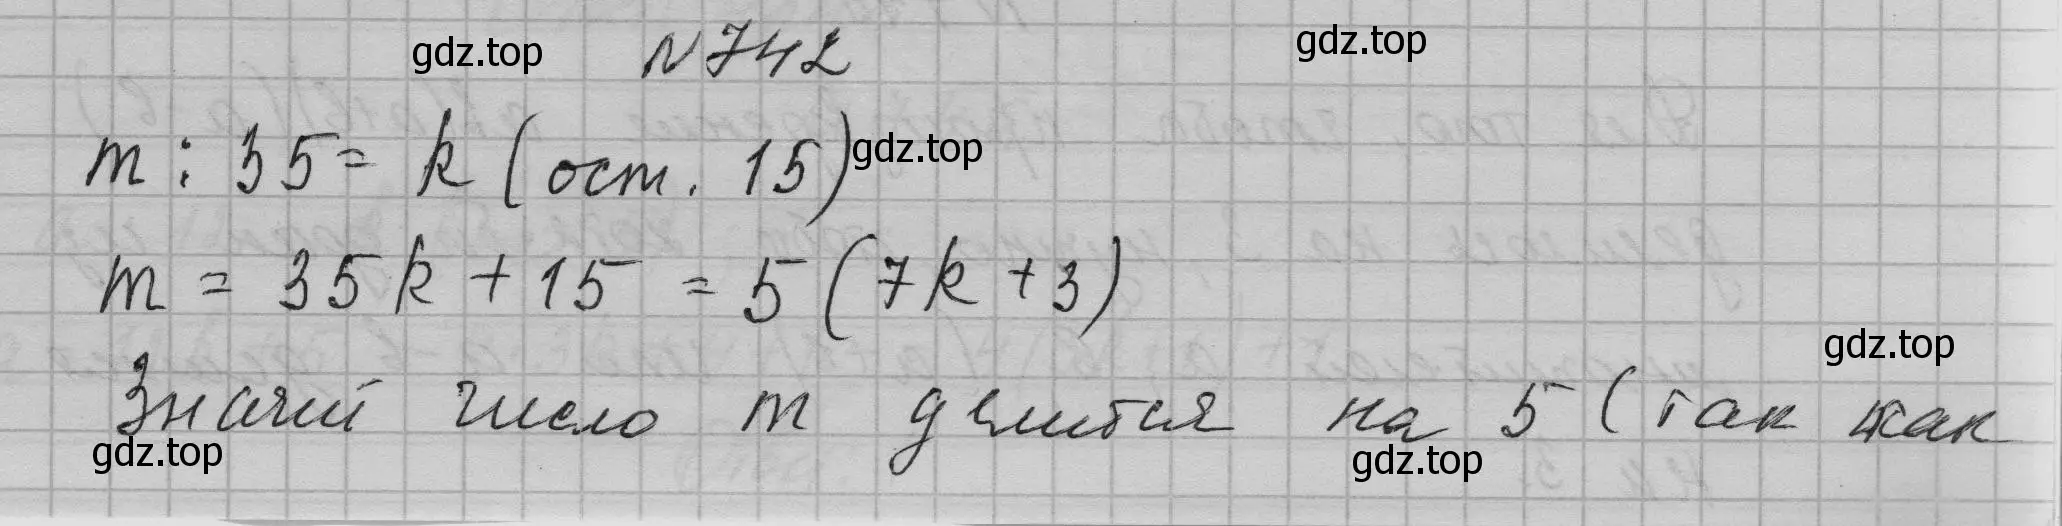 gdz.top
gdz.top
N 742
m : 35 = k (ост. 15)
gdz.top
m = 35k + 15 = 5 (7k + 3)
gdz.top
Значит число m делится на 5 (так как
gdz.top
gdz.top